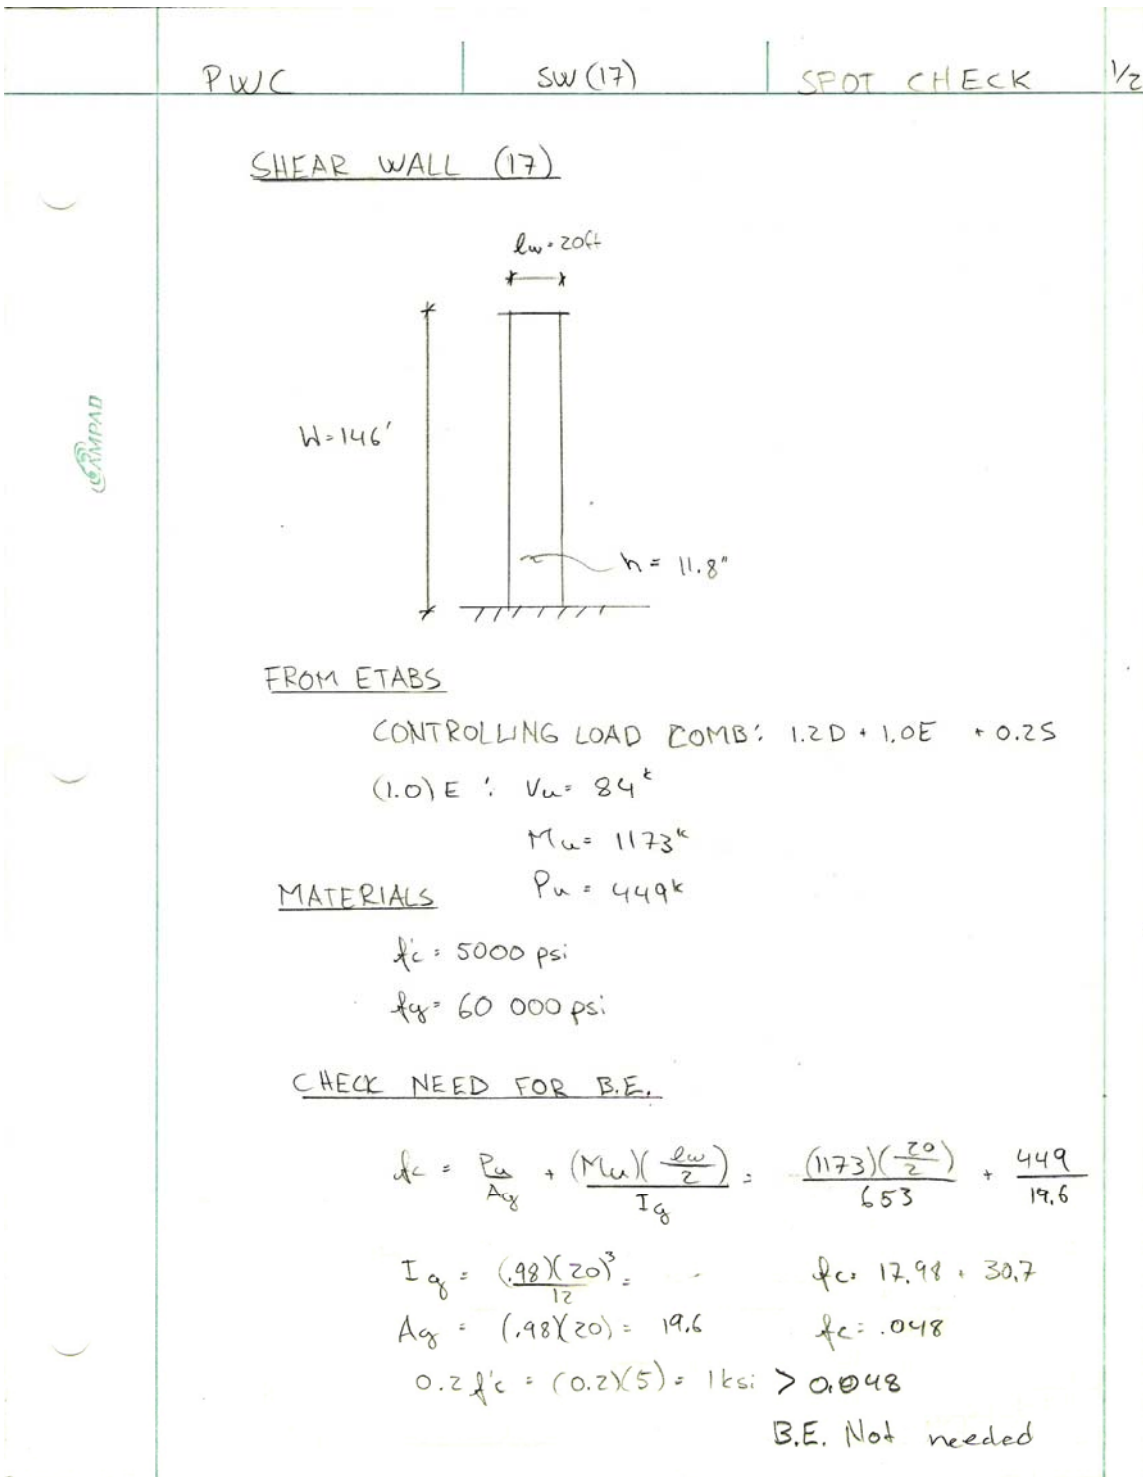 PWC SW (17) SPOT CHECK 1/2
SHEAR WALL (17)
lw = 20ft
W = 146'
CAMPAD
h = 11.8"
FROM ETABS
CONTROLLING LOAD COMB: 1.2D + 1.0E + 0.2S
(1.0) E : Vu = 84k
Mu = 1173k
Pu = 449k
MATERIALS
f'c = 5000 psi
fy = 60 000 psi
CHECK NEED FOR B.E.
fc = Pu/Ag + (Mu)(lw/2)/Ig = (1173)(20/2)/653 + 449/19.6
Ig = (.98)(20)³/12 = fc = 17.98 + 30.7
Ag = (.98)(20) = 19.6 fc = .048
0.2 f'c = (0.2)(5) = 1ksi > 0.048
B.E. Not needed